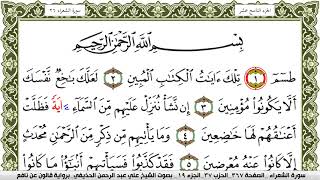 الجزء التاسع عشر سورة الشعراء ٢٦
بِسْمِ اللَّهِ الرَّحْمَٰنِ الرَّحِيمِ
طسٓمٓ ١ تِلْكَ ءَايَٰتُ الْكِتَٰبِ الْمُبِينِ ٢ لَعَلَّكَ بَٰخِعٌ نَّفْسَكَ
أَلَّا يَكُونُوا مُؤْمِنِينَ ٣ إِن نَّشَأْ نُنَزِّلْ عَلَيْهِم مِّنَ السَّمَآءِ اٰيَةً فَظَلَّتْ
أَعْنَٰقُهُمْ لَهَا خَٰضِعِينَ ٤ وَمَا يَأْتِيهِم مِّن ذِكْرٍ مِّنَ الرَّحْمَٰنِ مُحْدَثٍ
إِلَّا كَانُوا عَنْهُ مُعْرِضِينَ ٥ فَقَدْ كَذَّبُوا فَسَيَأْتِيهِمْ أَنۢبَٰٓؤُا مَا كَانُوا
سورة الشعراء الصفحة ٣٦٧ الحزب ٣٧ الجزء ١٩ بصوت الشيخ علي عبد الرحمن الحذيفي برواية قالون عن نافع